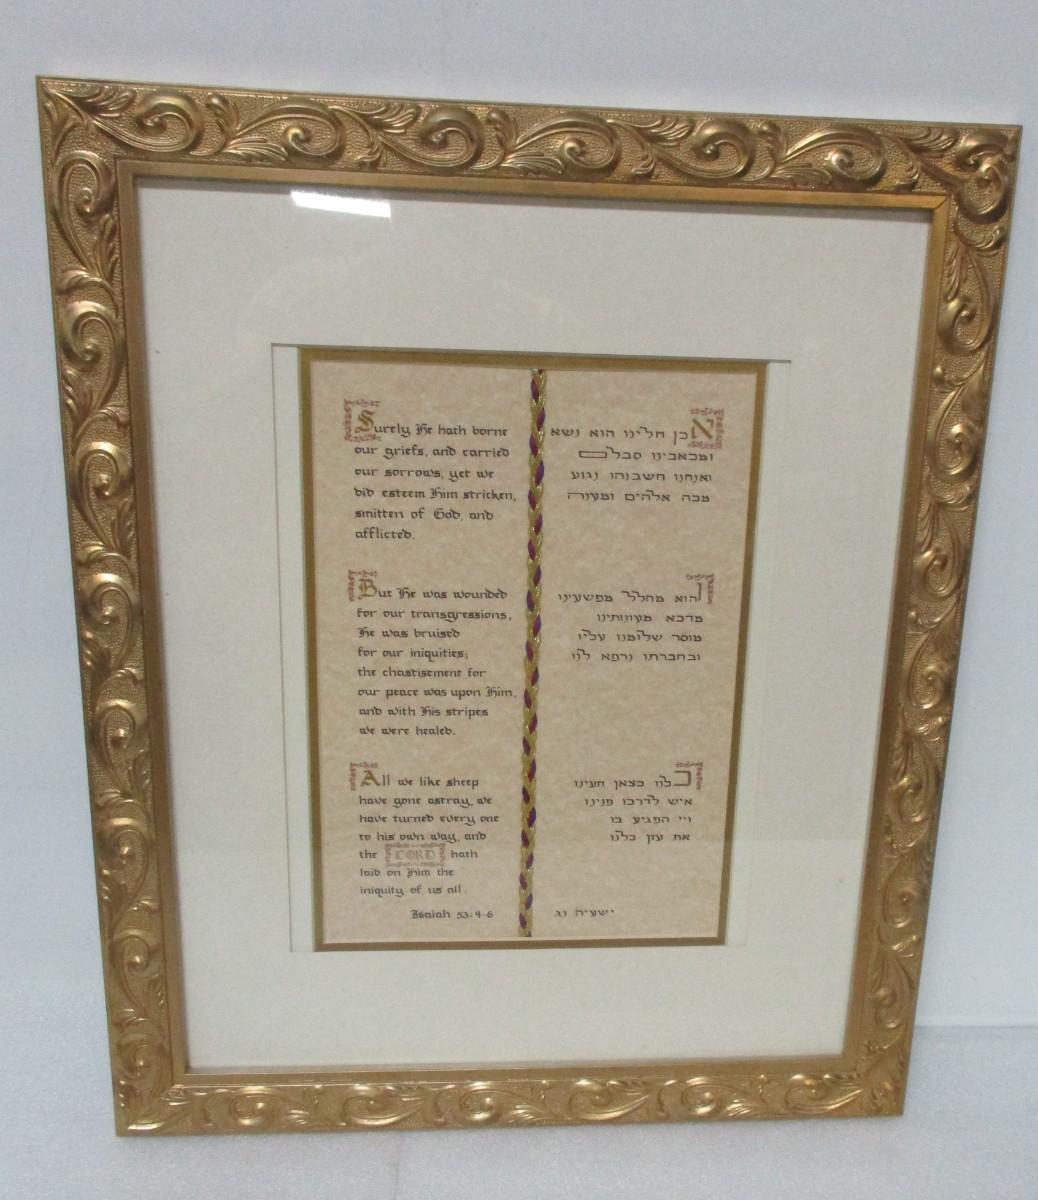 Surely He hath borne
our griefs, and carried
our sorrows, yet we
did esteem Him stricken,
smitten of God, and
afflicted.
But He was wounded
for our transgressions,
He was bruised
for our iniquities;
the chastisement for
our peace was upon Him,
and with His stripes
we were healed.
All we like sheep
have gone astray, we
have turned every one
to his own way, and
the LORD hath
laid on Him the
iniquity of us all.
Isaiah 53:4-6
אכן חלינו הוא נשא
ומכאבינו סבלם
ואנחנו חשבנוהו נגוע
מכה אלהים ומענה
והוא מחלל מפשעינו
מדכא מעונותינו
מוסר שלומנו עליו
ובחברתו נרפא לנו
כלנו כצאן תעינו
איש לדרכו פנינו
ויי הפגיע בו
את עון כלנו
ישעיה נג